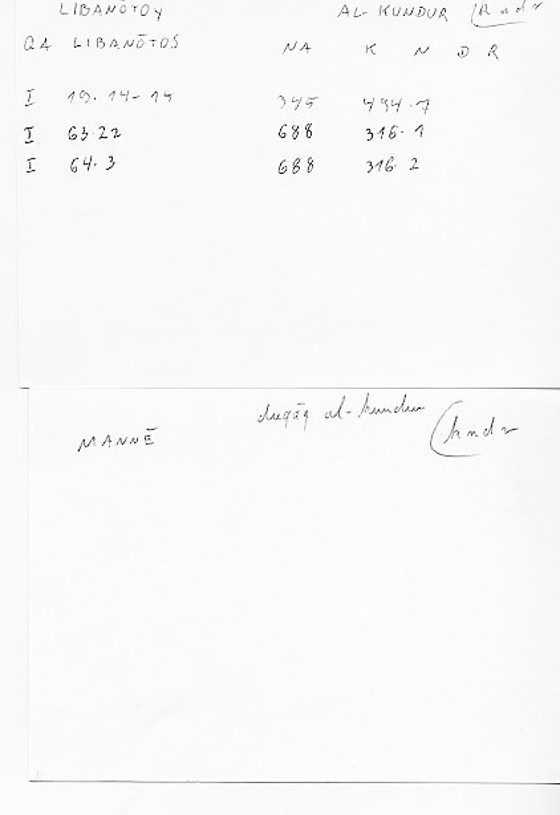 LIBANŌTOY AL-KUNDUR (kndr
QA LIBANŌTOS NA K N D R
I 19.14-15 345 494.7
I 63.22 688 316.1
I 64.3 688 316.2
duqāq al-kundur (kndr
MANNĒ